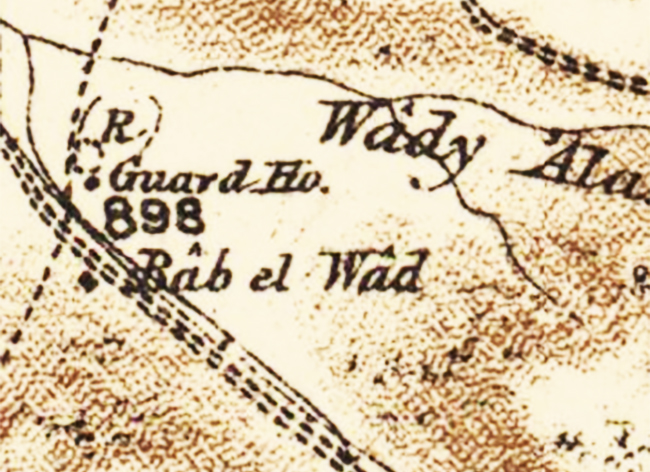 (R)
Wâdy 'Ala
Guard Ho.
898
Bâb el Wâd